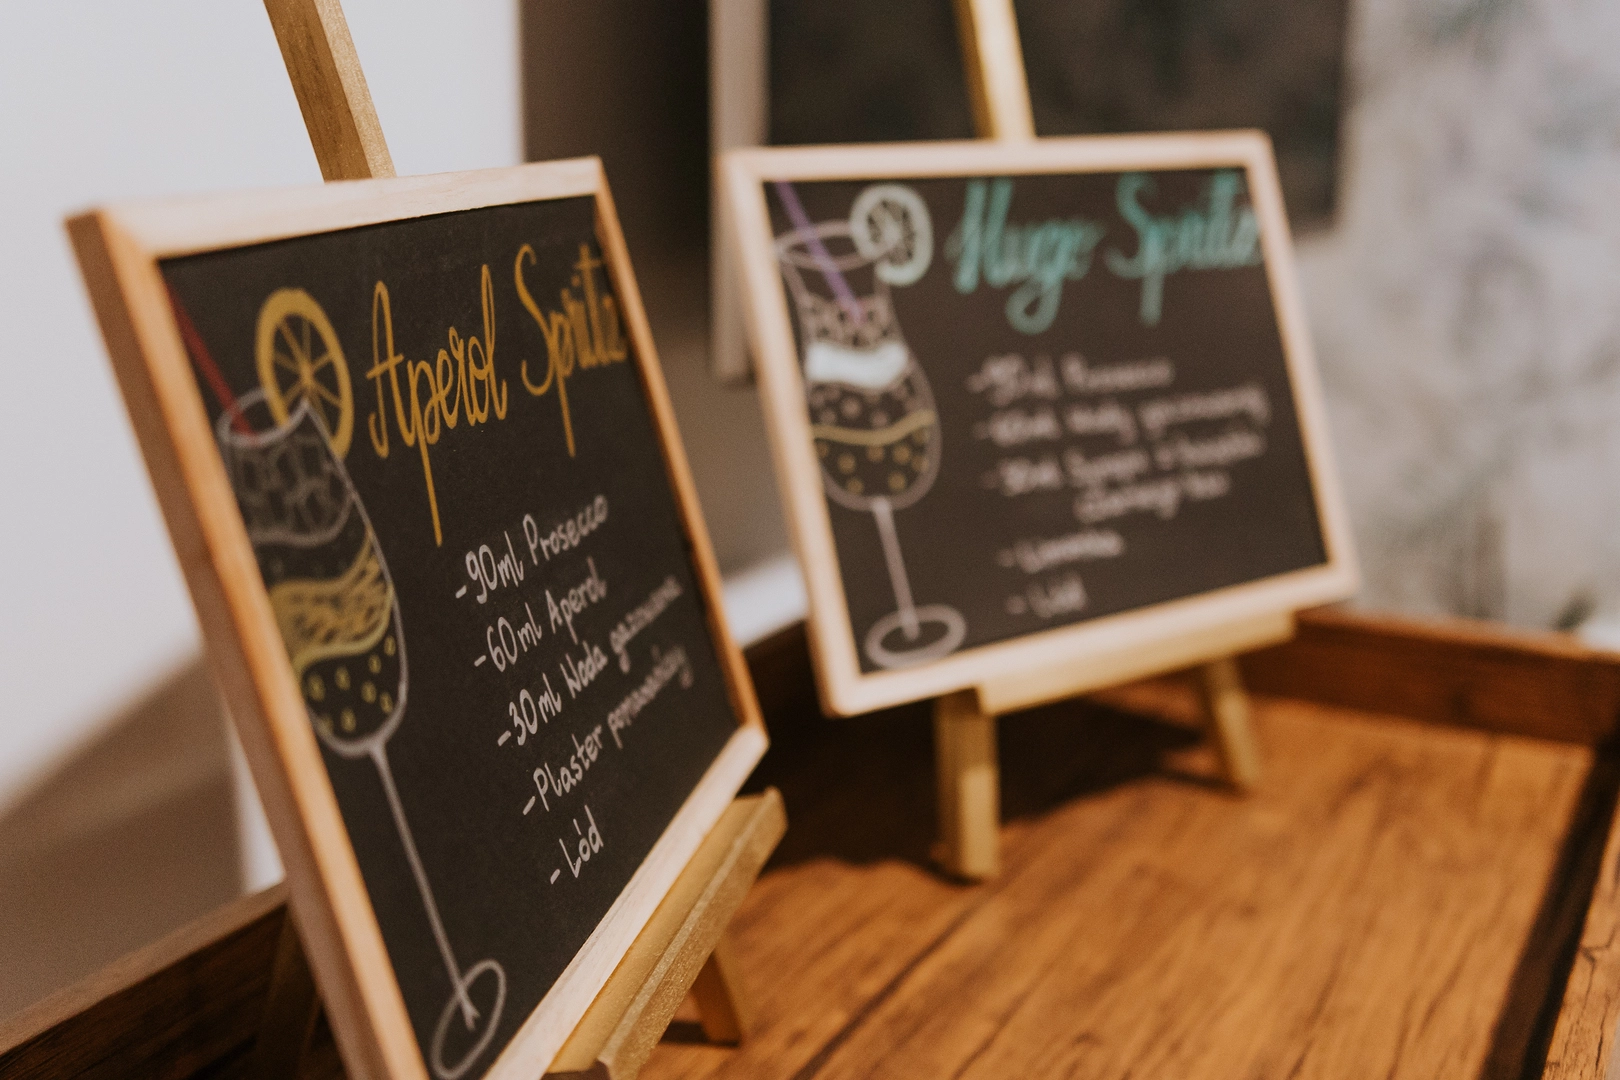 Aperol Spritz
-90ml Prosecco
-60ml Aperol
-30ml Woda gazowana
-Plaster pomarańczy
-Lód
Hugo Spritz
Prosecco
gazowanej
- Limonka
- Lód